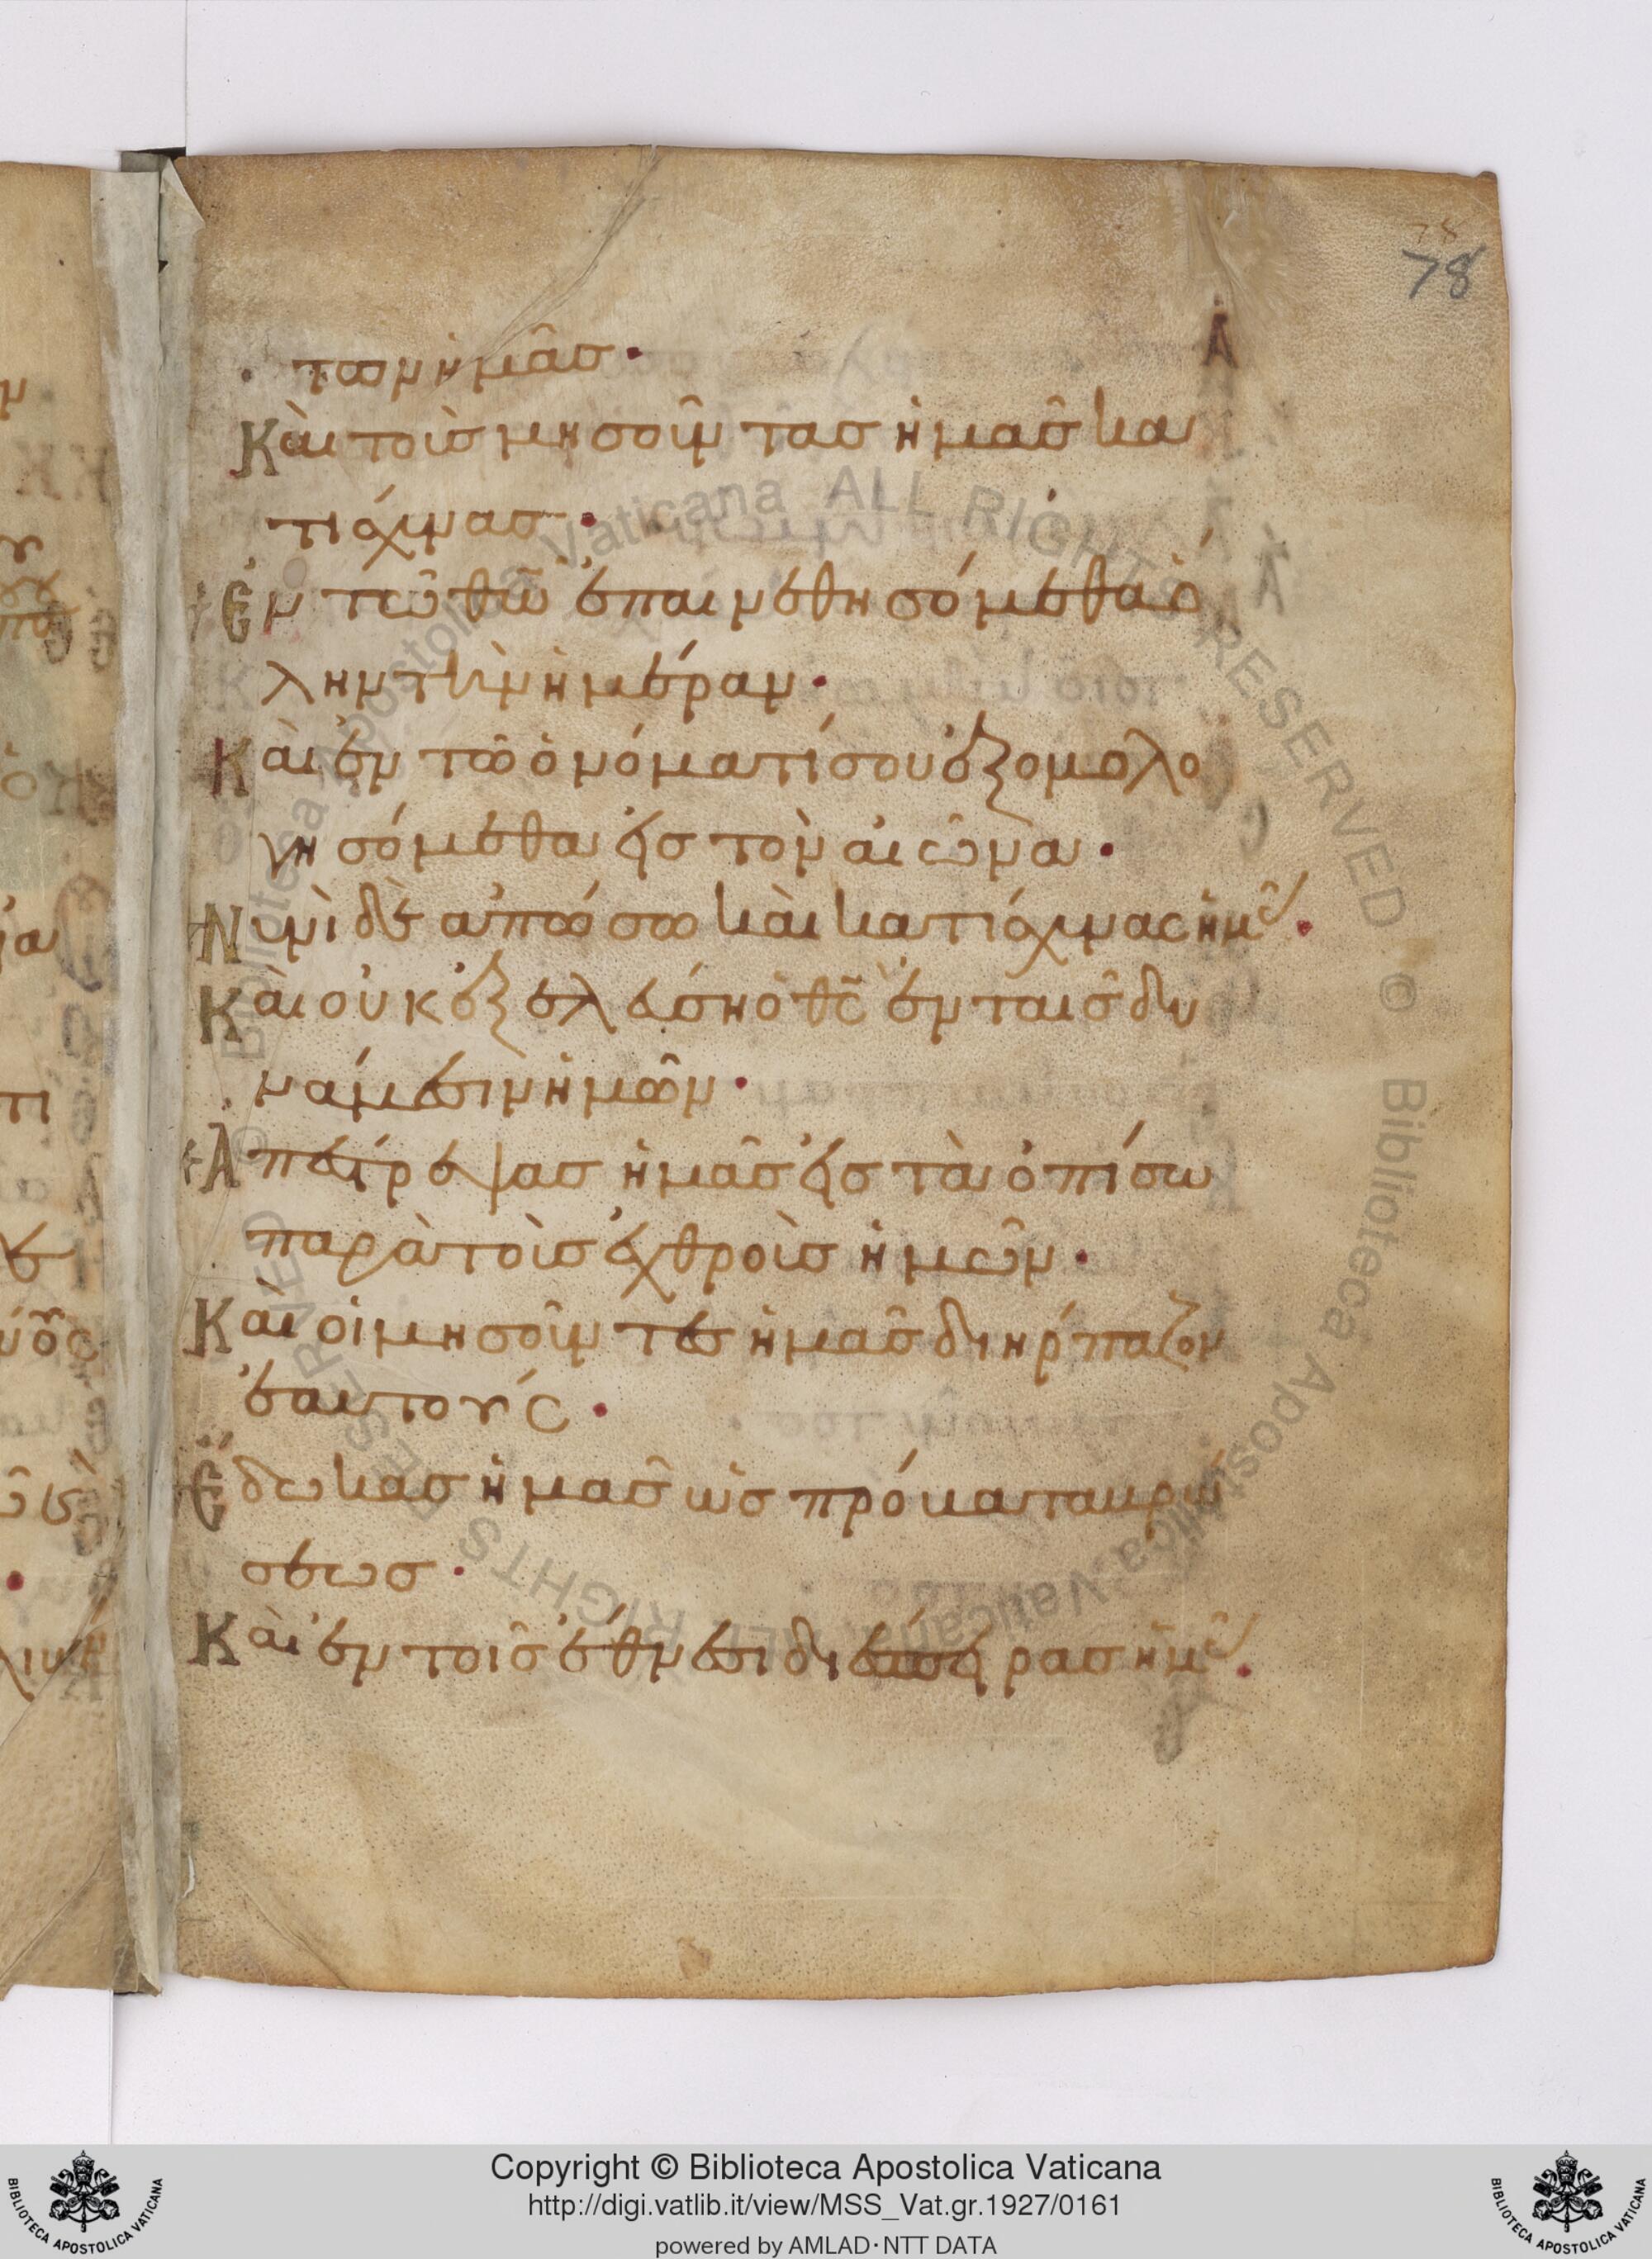 78
78
των ἡμᾶσ·
Καὶ τοὺσ μισοῦντασ ἡμᾶσ κα
τίσχυνασ·
Ἐν τῶ θῶ ἐπαινεθησόμεθα ὅ
λην τὴν ἡμέραν·
Καὶ ἐν τῶ ὀνόματί σου ἐξομολο
γησόμεθα εἰσ τὸν αἰῶνα·
Νυνὶ δὲ ἀπώσω καὶ κατίσχυνας ἡμᾶ·
Καὶ οὐκ ἐξελεύση ὁ θς ἐν ταισ δυ
νάμεσιν ἡμῶν·
Ἀπέστρεψασ ἡμᾶσ εἰσ τὰ ὀπίσω
παρὰ τοὺσ ἐχθροὺσ ἡμῶν·
Καὶ οἱ μισοῦντεσ ἡμᾶσ διήρπαζον
ἑαυτούς·
Ἔδωκασ ἡμᾶσ ὡσ πρόβατα βρώ
σεωσ·
Καὶ ἐν τοῖσ ἔθνεσι διέσπειρασ ἡμᾶ·
Copyright © Biblioteca Apostolica Vaticana
http://digi.vatlib.it/view/MSS_Vat.gr.1927/0161
powered by AMLAD·NTT DATA
BIBLIOTECA APOSTOLICA VATICANA
BIBLIOTECA APOSTOLICA VATICANA